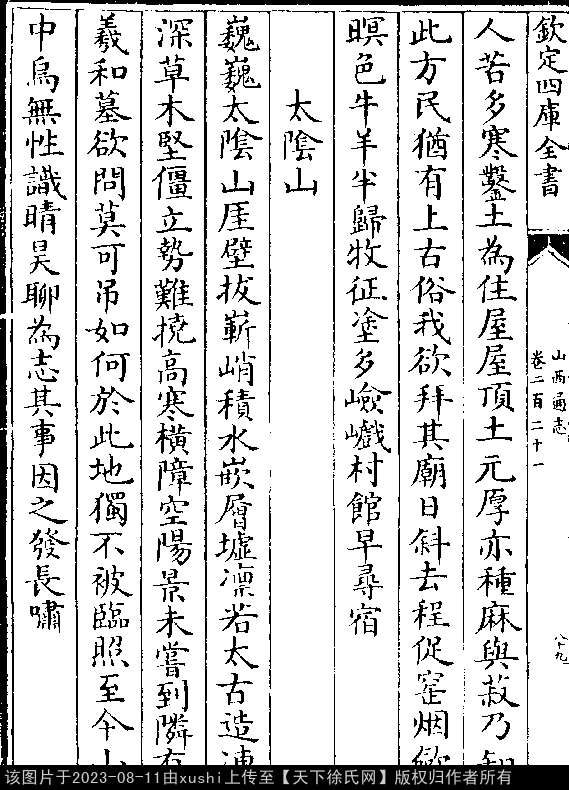 欽定四庫全書
山西通志
卷二百二十一
八十九
人苦多寒鑿土為住屋屋頂土元厚亦種麻與菽乃知
此方民猶有上古俗我欲拜其廟日斜去程促窰烟
暝色牛羊半歸牧征塗多嶮巇村館早尋宿
太陰山
巍巍太陰山厓壁拔嶄峭積水嵌層墟凜若太古造
深草木堅僵立勢難撓高寒橫障空陽景未嘗到隣有
羲和墓欲問莫可吊如何於此地獨不被臨照至今山
中鳥無性識晴昊聊為志其事因之發長嘯
该图片于2023-08-11由xushi上传至【天下徐氏网】版权归作者所有